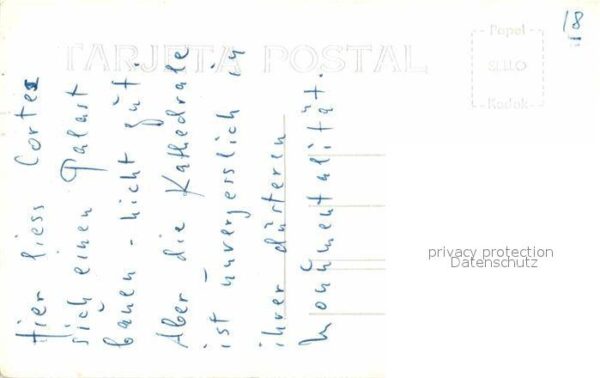 TARJETA POSTAL
Papel
SELLO
Kodak
18
Hier liess Cortez
sich einen Palast
bauen - nicht gut.
Aber die Kathedrale
ist unvergesslich in
ihrer düsteren
Monumentalität.
privacy protection
Datenschutz